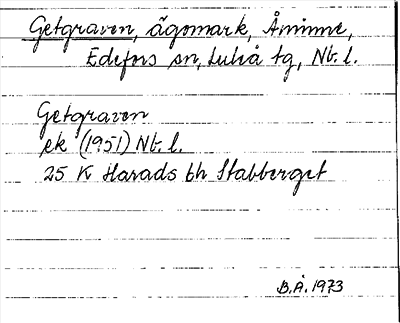 Getgraven, ägomark, Åminne,
Edefors sn, Luleå tg, Nb. l.
Getgraven
ek (1951) Nb. l.
25 K Harads bh Stabberget
B.Å. 1973